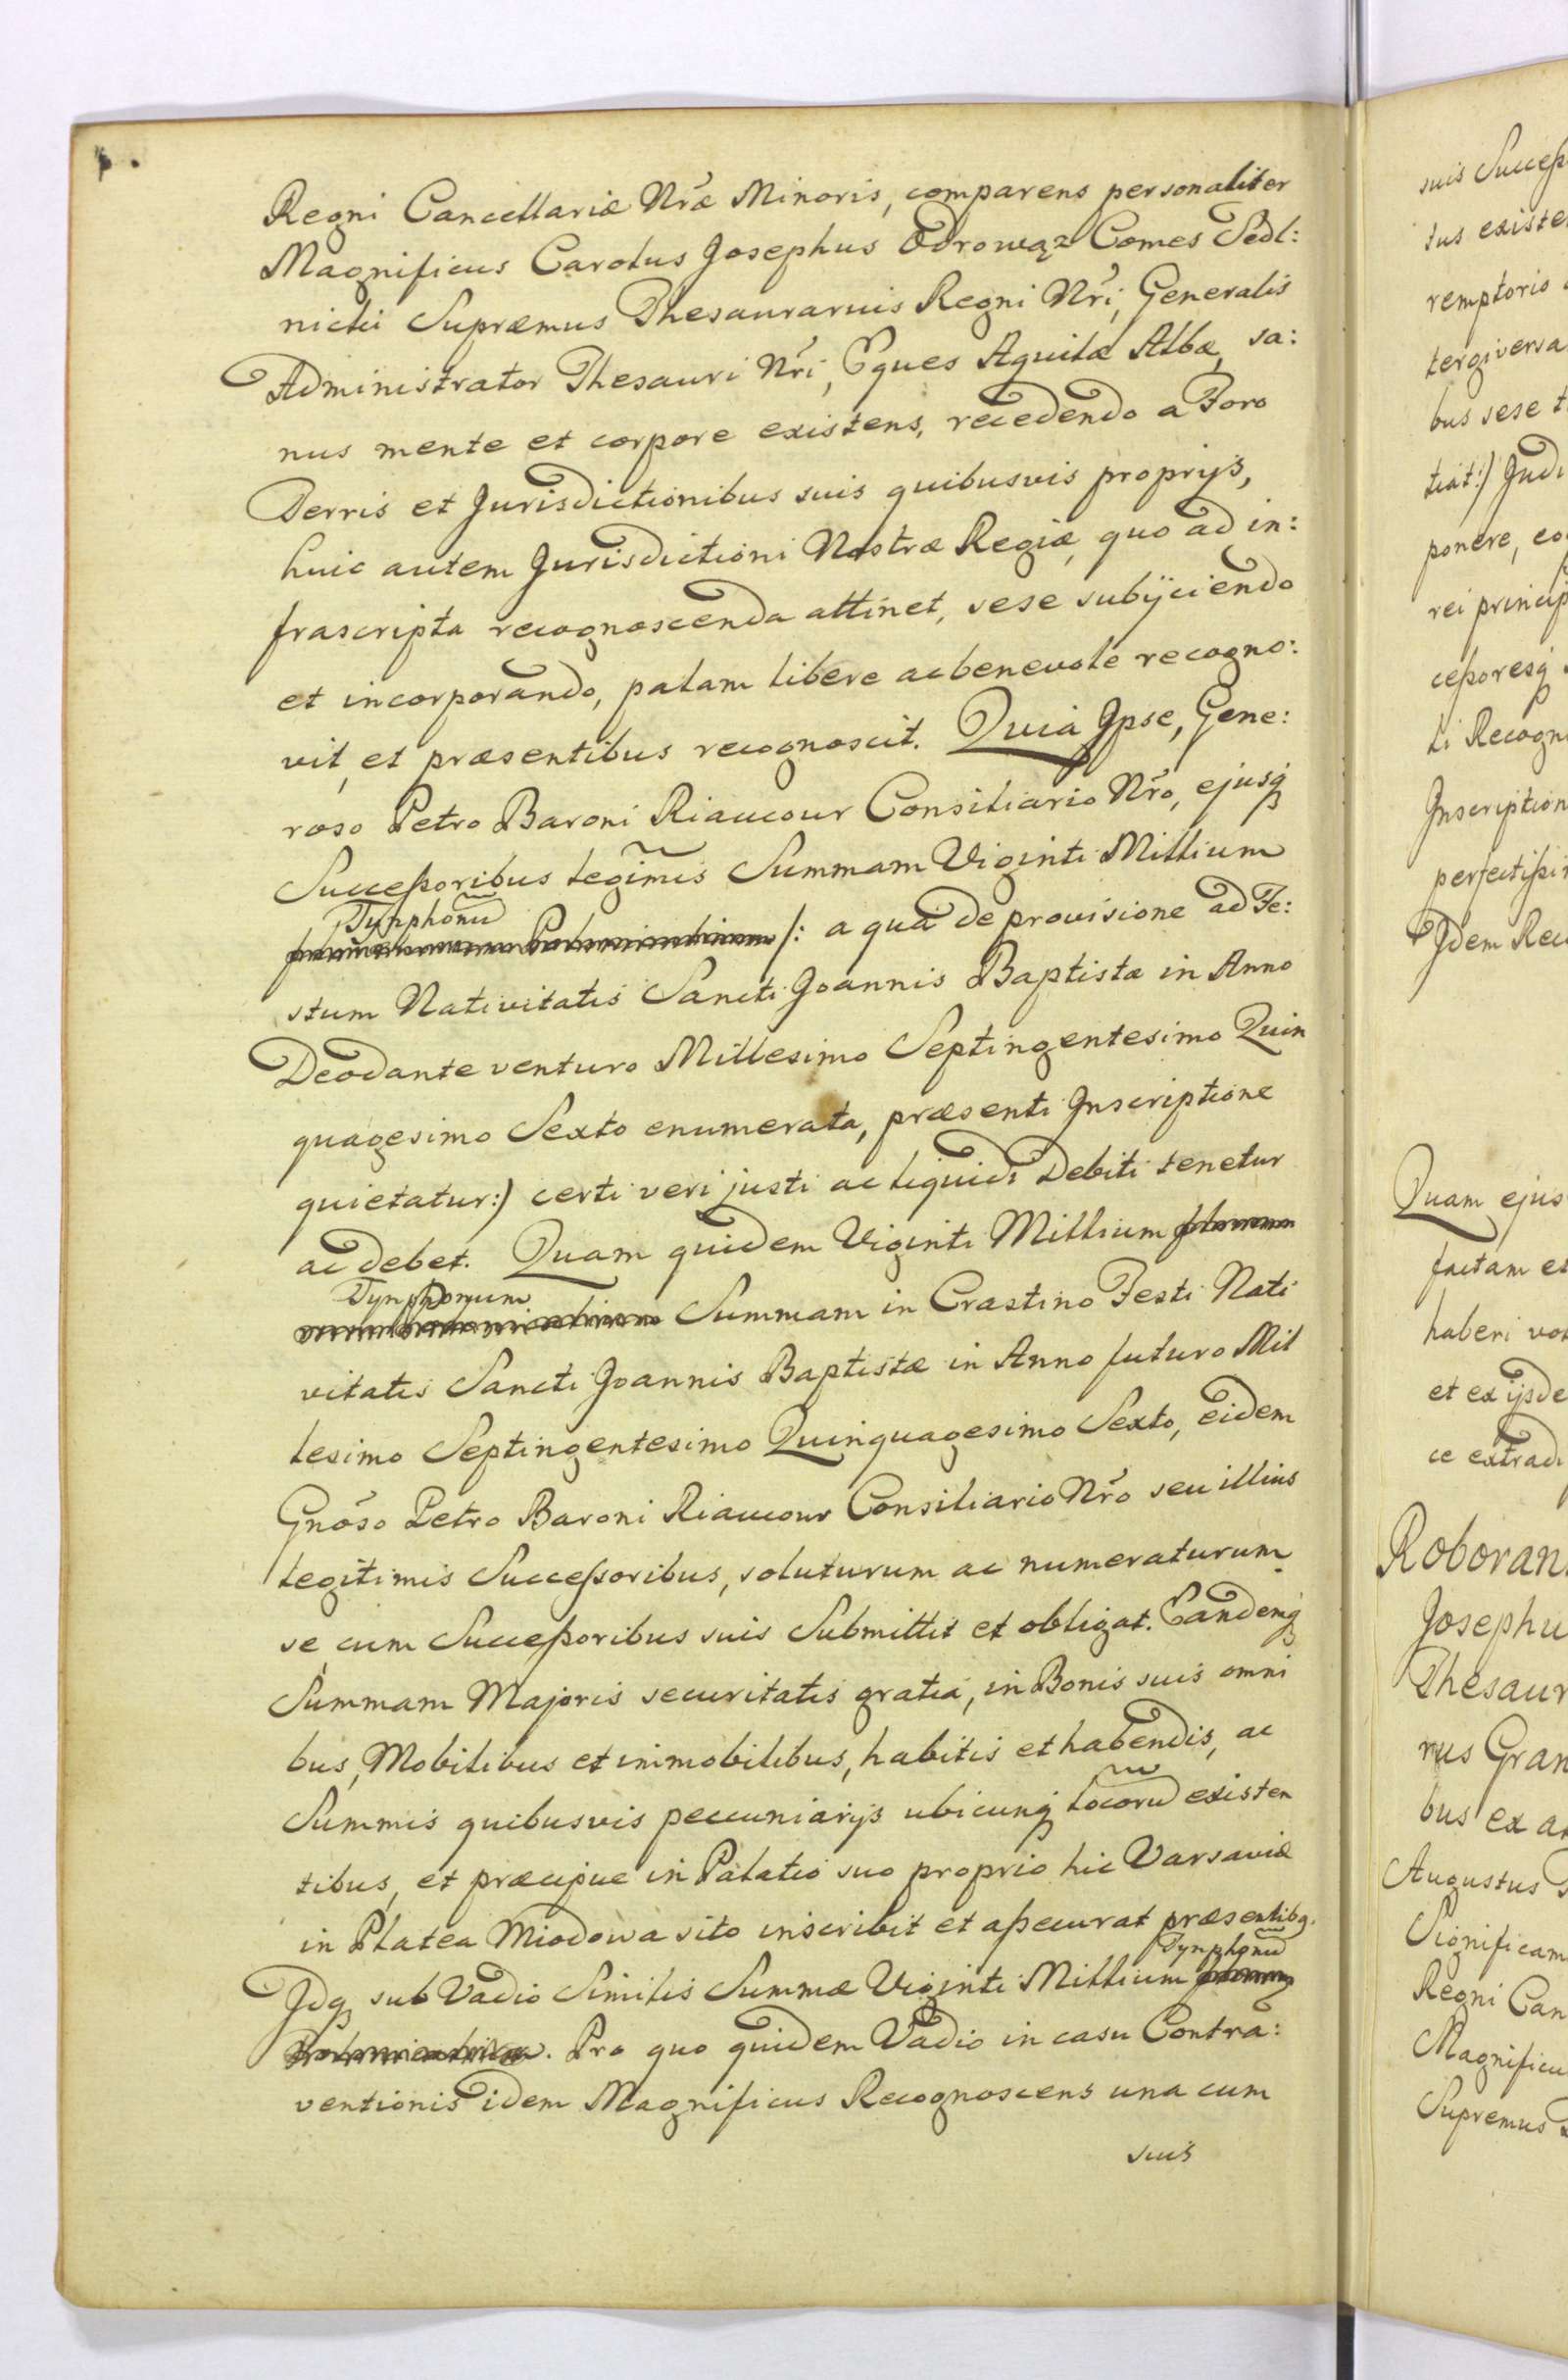 Regni Cancellariæ Nr̃æ Minoris, comparens personaliter
Magnificus Carolus Josephus Odrowąz Comes Sedl:
nicki Supræmus Thesaurarius Regni Nr̃i, Generalis
Administrator Thesauri Nr̃i, Eques Aquilæ Albæ, sa:
nus mente et corpore existens, recedendo a Foro
Terris et Jurisdictionibus suis quibusvis proprijs,
huic autem Jurisdictioni Nostræ Regiæ, quo ad in:
frascripta recognoscenda attinet, sese subijciendo
et incorporando, palam libere ac benevole recogno:
vit, et præsentibus recognoscit. Quia Ipse, Gene:
roso Petro Baroni Riaucour Consiliario Nr̃o, ejusq̃
Successoribus legim̃is Summam Viginti Millium
Tynphonũ
/: a qua de provisione ad Fe:
stum Nativitatis Sancti Joannis Baptistæ in Anno
Deo dante venturo Millesimo Septingentesimo Quin
quagesimo Sexto enumerata, præsenti Inscriptione
quietatur:) certi veri justi ac liquidi Debiti tenetur
ac debet. Quam quidem Viginti Millium
Tynphonum
Summam in Crastino Festi Nati
vitatis Sancti Joannis Baptistæ in Anno futuro Mil
lesimo Septingentesimo Quinquagesimo Sexto, eidem
Gnõso Petro Baroni Riaucour Consiliario Nr̃o seu illius
legitimis Successoribus, soluturum ac numeraturum
se cum Successoribus suis Submittit et obligat. Eandemq̃
Summam Majoris securitatis gratia, in Bonis suis omni
bus, Mobilibus et immobilibus, habitis et habendis, ac
Summis quibusvis pecuniarijs ubicunq̃ locorũ existen
tibus, et præcipue in Palatio suo proprio hic Varsaviæ
in Platea Miodowa sito inscribit et assecurat præsentibq.
Tynphonũ
Idq̃ sub Vadio Similis Summæ Viginti Millium
. Pro quo quidem Vadio in casu Contra:
ventionis idem Magnificus Recognoscens una cum
suis
suis Success
tus existe
remptorio
tergiversa
bus sese t
tiat:) Judi
ponere, co
rei princip
cessoresq̃
ti Recogn
Inscription
perfectissi
Idem Rec
Quam ejus
factam et
haberi vo
et ex ijsde
ce extradi
Roboran
Josephu
Thesaur
rus Gran
bus ex a
Augustus
Significam
Regni Can
Magnificu
Supremus